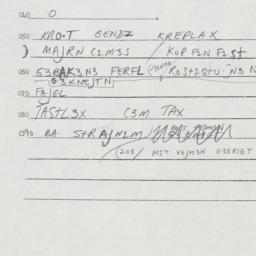 040 O
050 KRO.T GENDZ KREPLAX
) MAJRN C1M3S KOP F1N F1St
060 G3BAK3N3 FERFL ROSt1StU.N3 N
G3KNEJTN
070 FAJGL
080 TASTL3X C3M TAX
090 BA StRAJN1M
(208) MIT VEJM3N G3RIGT